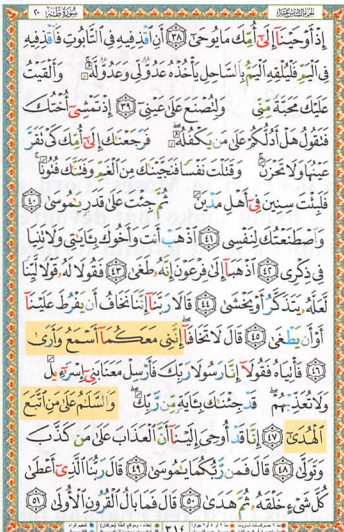 سورة طه ٢٠
إِذْ أَوْحَيْنَا إِلَىٰ أُمِّكَ مَا يُوحَىٰ ٣٨ أَنِ اقْذِفِيهِ فِي التَّابُوتِ فَاقْذِفِيهِ
فِي الْيَمِّ فَلْيُلْقِهِ الْيَمُّ بِالسَّاحِلِ يَأْخُذْهُ عَدُوٌّ لِّي وَعَدُوٌّ لَّهُ وَأَلْقَيْتُ
عَلَيْكَ مَحَبَّةً مِّنِّي وَلِتُصْنَعَ عَلَىٰ عَيْنِي ٣٩ إِذْ تَمْشِي أُخْتُكَ
فَتَقُولُ هَلْ أَدُلُّكُمْ عَلَىٰ مَن يَكْفُلُهُ فَرَجَعْنَاكَ إِلَىٰ أُمِّكَ كَيْ تَقَرَّ
عَيْنُهَا وَلَا تَحْزَنَ وَقَتَلْتَ نَفْسًا فَنَجَّيْنَاكَ مِنَ الْغَمِّ وَفَتَنَّاكَ فُتُونًا
فَلَبِثْتَ سِنِينَ فِي أَهْلِ مَدْيَنَ ثُمَّ جِئْتَ عَلَىٰ قَدَرٍ يَا مُوسَىٰ ٤٠
وَاصْطَنَعْتُكَ لِنَفْسِي ٤١ اذْهَبْ أَنتَ وَأَخُوكَ بِآيَاتِي وَلَا تَنِيَا
فِي ذِكْرِي ٤٢ اذْهَبَا إِلَىٰ فِرْعَوْنَ إِنَّهُ طَغَىٰ ٤٣ فَقُولَا لَهُ قَوْلًا لَّيِّنًا
لَّعَلَّهُ يَتَذَكَّرُ أَوْ يَخْشَىٰ ٤٤ قَالَا رَبَّنَا إِنَّنَا نَخَافُ أَن يَفْرُطَ عَلَيْنَا
أَوْ أَن يَطْغَىٰ ٤٥ قَالَ لَا تَخَافَا إِنَّنِي مَعَكُمَا أَسْمَعُ وَأَرَىٰ
٤٦ فَأْتِيَاهُ فَقُولَا إِنَّا رَسُولَا رَبِّكَ فَأَرْسِلْ مَعَنَا بَنِي إِسْرَائِيلَ
وَلَا تُعَذِّبْهُمْ قَدْ جِئْنَاكَ بِآيَةٍ مِّن رَّبِّكَ وَالسَّلَامُ عَلَىٰ مَنِ اتَّبَعَ
الْهُدَىٰ ٤٧ إِنَّا قَدْ أُوحِيَ إِلَيْنَا أَنَّ الْعَذَابَ عَلَىٰ مَن كَذَّبَ
وَتَوَلَّىٰ ٤٨ قَالَ فَمَن رَّبُّكُمَا يَا مُوسَىٰ ٤٩ قَالَ رَبُّنَا الَّذِي أَعْطَىٰ
كُلَّ شَيْءٍ خَلْقَهُ ثُمَّ هَدَىٰ ٥٠ قَالَ فَمَا بَالُ الْقُرُونِ الْأُولَىٰ ٥١
٣١٤